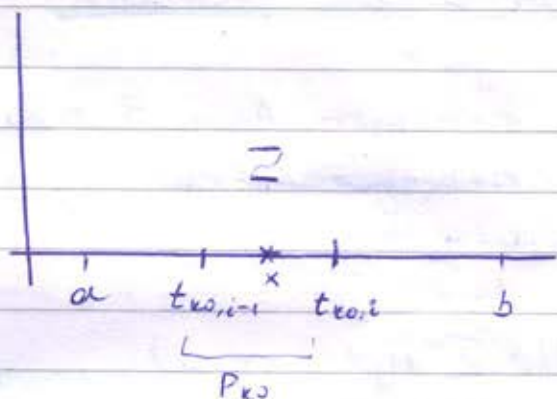 Z
x
a t_{k0,i-1} t_{k0,i} b
P_{k0}